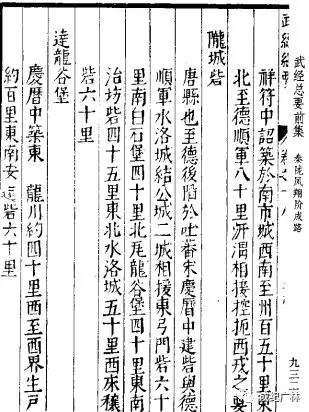 武经总要前集 秦陇凤翔阶成路
九三二
祥符中詔築於南市城西南至州百五十里東
北至德順軍八十里汧渭相接控扼西戎之要
隴城砦
唐縣也至德後陷於吐蕃宋慶曆中建砦與德
順軍水洛城結公城二城相援東弓門砦六十
里南白石堡四十里北尾龍谷堡四十里東南
治坊砦四十五里東北水洛城五十里西床穰
砦六十里
達龍谷堡
慶曆中築東 龍川約四十里西至西界生戸
約百里東南安 遠砦六十里